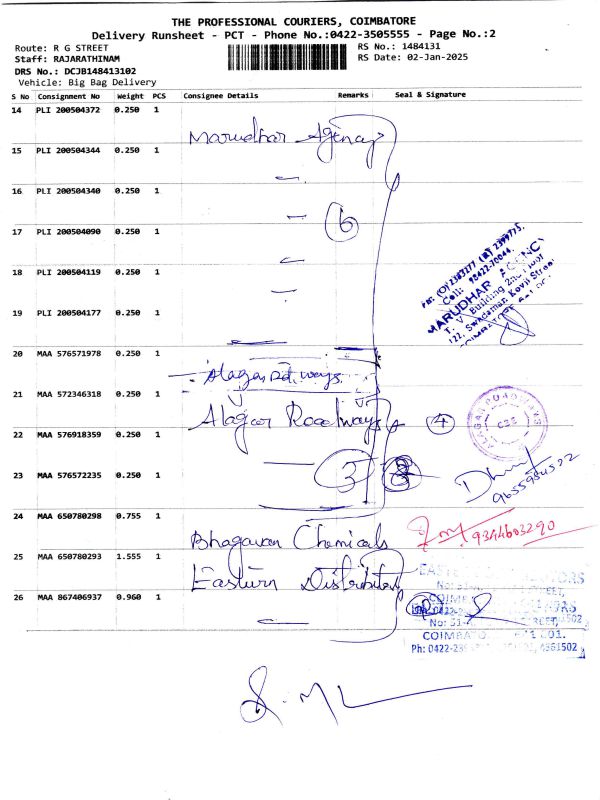 THE PROFESSIONAL COURIERS, COIMBATORE
Delivery Runsheet - PCT - Phone No.:0422-3505555 - Page No.:2
Route: R G STREET
RS No.: 1484131
Staff: RAJARATHINAM
RS Date: 02-Jan-2025
DRS No.: DCJB148413102
Vehicle: Big Bag Delivery
S No Consignment No Weight PCS Consignee Details Remarks Seal & Signature
14 PLI 200504372 0.250 1
Marudhar Agency
15 PLI 200504344 0.250 1
16 PLI 200504340 0.250 1
6
17 PLI 200504090 0.250 1
Per: (O) 2383277 (R) 2399775.
Cell: 98422-70044.
MARUDHAR AGENCY
T. V. Building 2nd Floor
122, Swadamani Kovil Street
18 PLI 200504119 0.250 1
19 PLI 200504177 0.250 1
20 MAA 576571978 0.250 1
21 MAA 572346318 0.250 1
Alagar Roadways
4
ALAGAR ROADWAYS
22 MAA 576918359 0.250 1
23 MAA 576572235 0.250 1
3
24 MAA 650780298 0.755 1
Bhagavan Chemicals
9344603290
25 MAA 650780293 1.555 1
Eastern Distributors
26 MAA 867406937 0.960 1
COIMBATO
Ph: 0422-